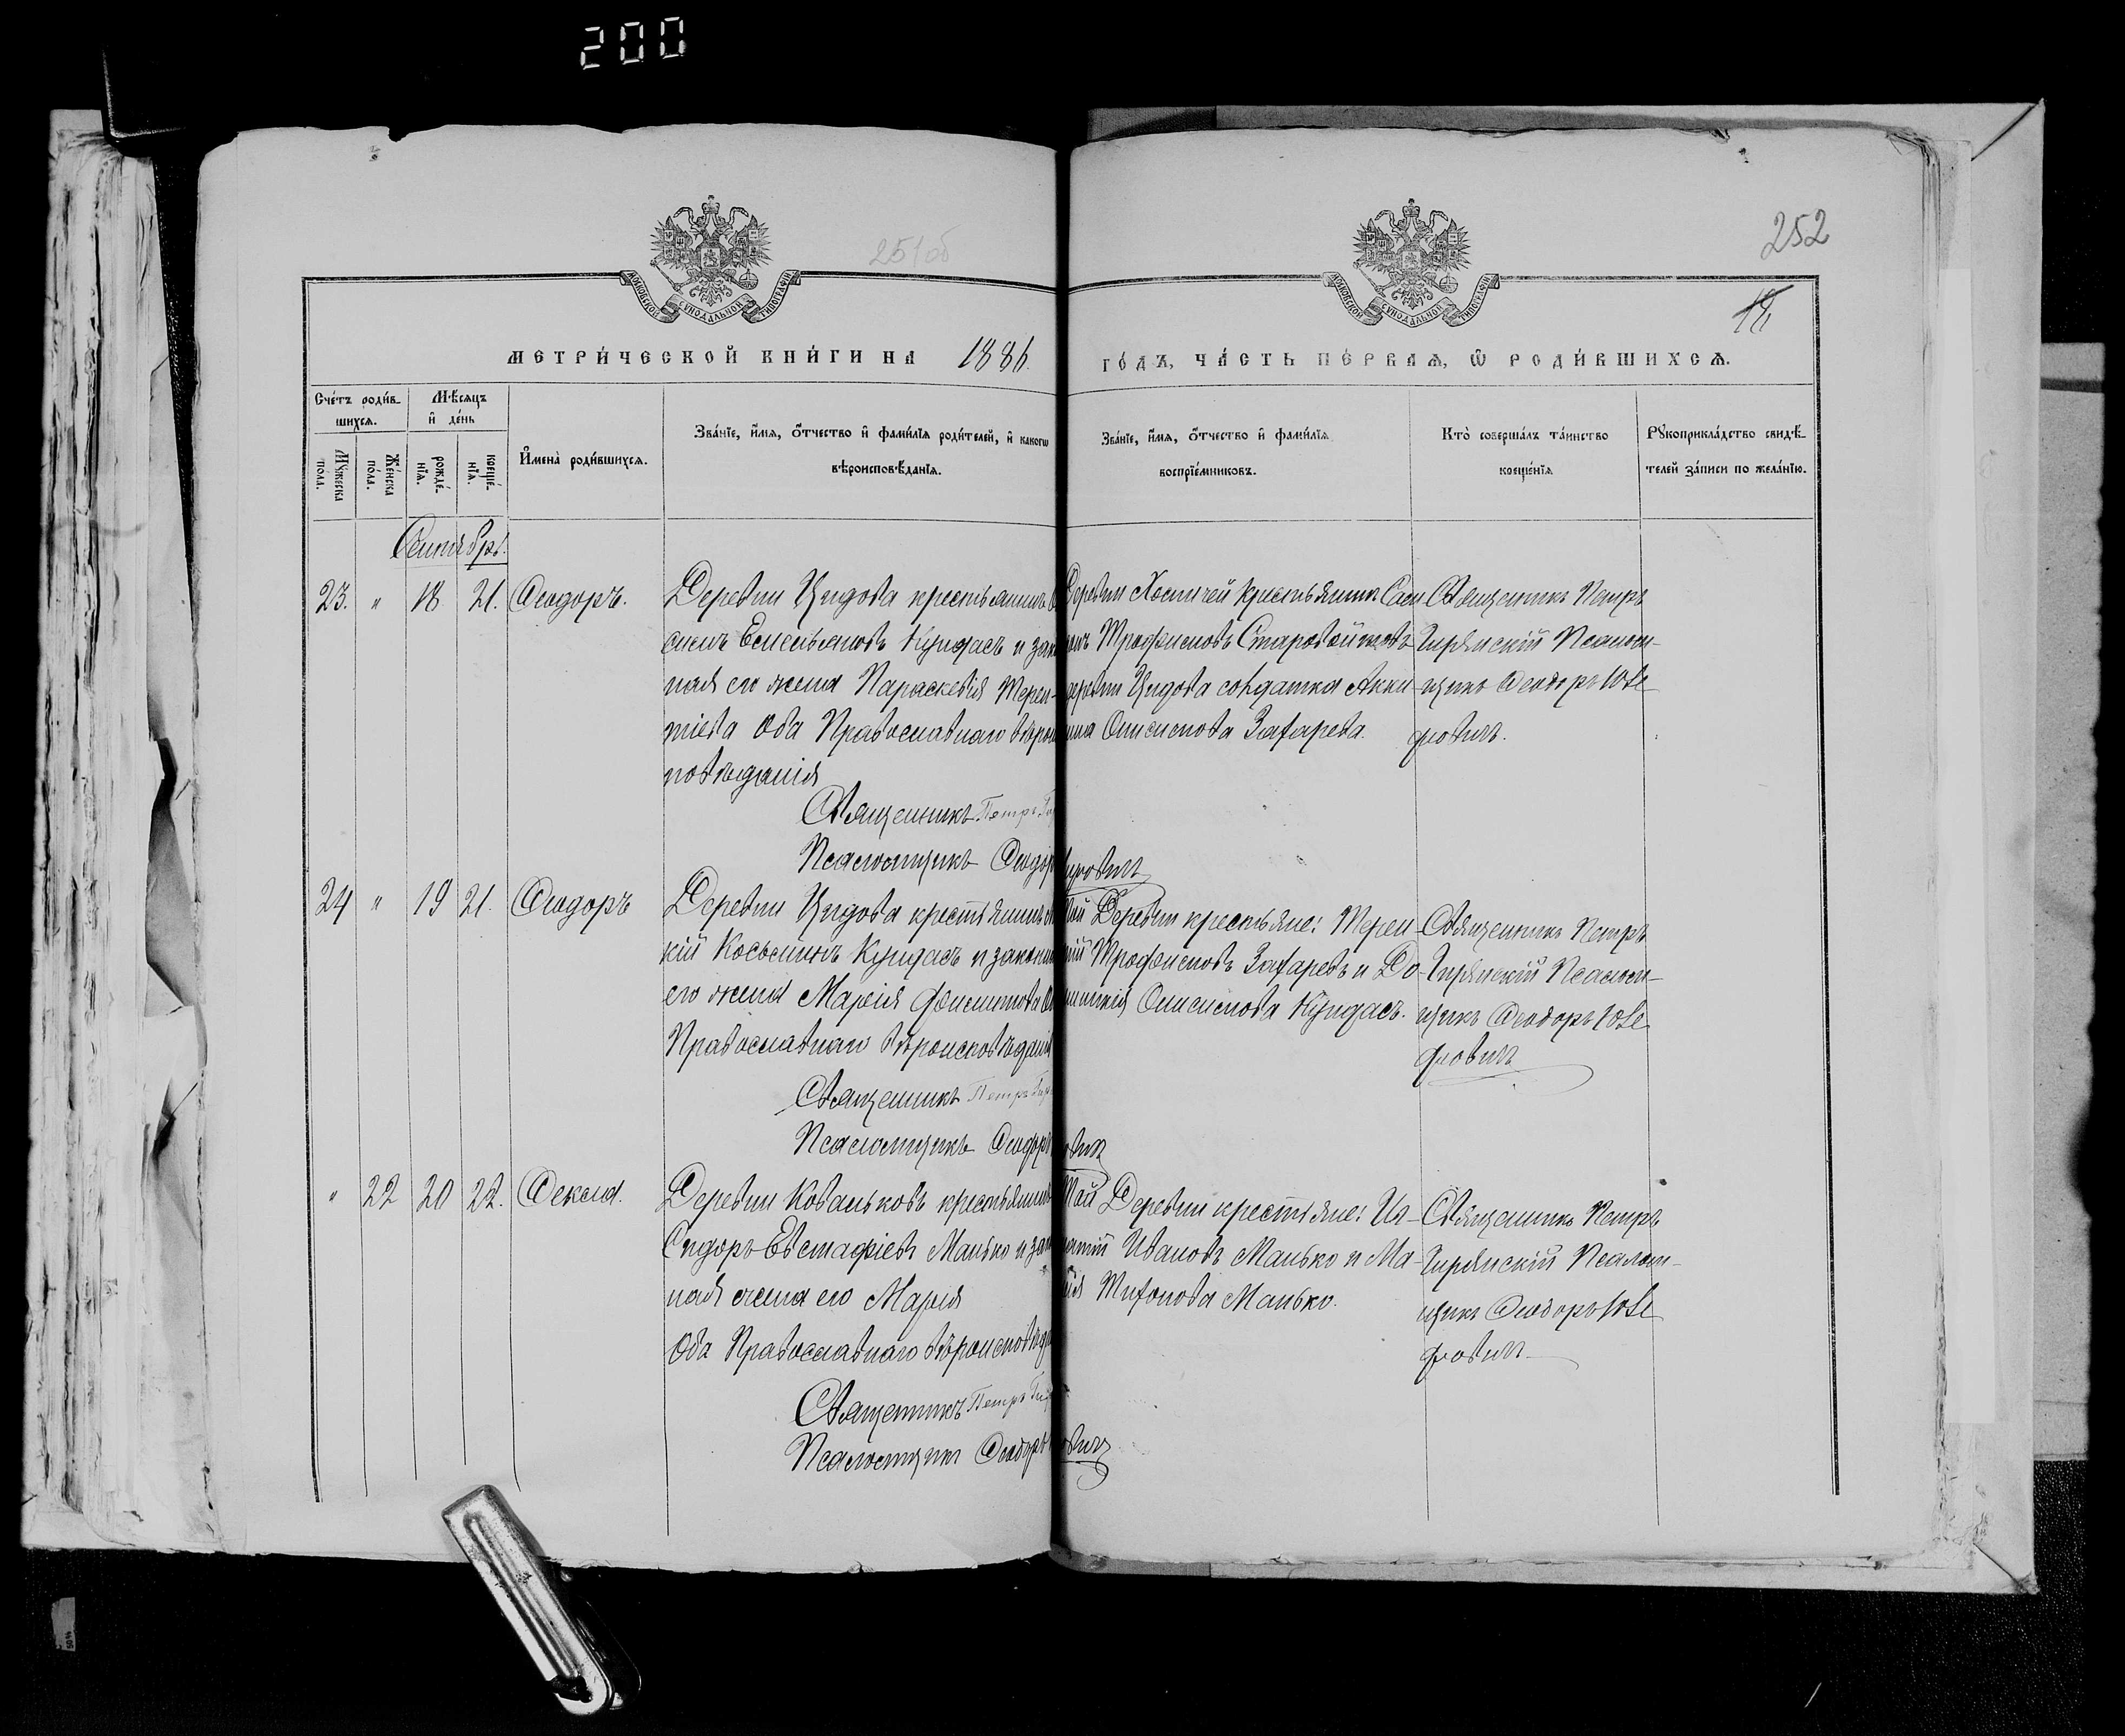 200
251об
252
18
МОСКОВСКОЙ СУНОДАЛЬНОЙ ТИПОГРАФІИ
МОСКОВСКОЙ СУНОДАЛЬНОЙ ТИПОГРАФІИ
МЕТРИ́ЧЕСКОЙ КНИ́ГИ НА 1886. ГО́ДЪ, ЧА́СТЬ ПЕ́РВАЯ, Ѡ РОДИ́ВШИХСЯ.
Сче́тъ роди́в-
шихся.
Му́жеска
по́ла.
Же́нска
по́ла.
Мѣ́сяцъ
и҆ де́нь
рожде́-
нїя.
креще́-
нїя.
И҆мена̀ роди́вшихся.
Зва́нїе, и҆́мя, ѻ҆́тчество и҆ фами́лїя роди́телей, и҆ какогѡ
вѣроисповѣ́данїя.
Зва́нїе, и҆́мя, ѻ҆́тчество и҆ фами́лїя
воспрїе́мниковъ.
Кто̀ соверша́лъ та́инство
креще́нїя
Рꙋкоприкла́дство свидѣ́-
телей за́писи по жела́нїю.
Сентябрь.
23. " 18 21. Ѳеодоръ.
Деревни Цидова крестьянинъ
Емельяновъ Кундасъ и зак
ная его жена Параскевія Терен-
тіева Оба Православнаго вѣрои
повѣданія
Священникъ Петръ
Псаломщикъ Ѳеодор
Деревни Хостичей крестьянин
Трофимовъ Старовойтовъ
деревни Цидова солдатка Акки-
Онисимова Захарева.
Священникъ Петръ
Гирянскій Псалом-
щикъ Ѳеодоръ Юзе
фовичъ.
фовичъ
24 " 19 21. Ѳеодоръ
Деревни Цидова крестьянинъ
кій Косьминъ Кундасъ и законн
его жена Марія
Православнаго вѣроисповѣданія
Священникъ Петръ Гир
Псаломщикъ Ѳеодоръ
той Деревни крестьяне: Терен-
тій Трофимовъ Захаревъ и До-
Онисимова Кундасъ.
Священникъ Петръ
Гирянскій Псалом-
щикъ Ѳеодоръ Юзе
фовичъ
овичъ
" 22 20 22. Ѳекла.
Деревни Кованьковъ крестьянинъ
Сидоръ Евстафіевъ Манько и зак
ная жена его Марія
Оба Православнаго вѣроисповѣда
Священникъ Петръ Гир
Псаломщикъ Ѳеодоръ
той Деревни крестьяне: Иг-
натій Ивановъ Манько и Ма-
рія Тихонова Манько.
Священникъ Петръ
Гирянскій Псалом-
щикъ Ѳеодоръ Юзе
фовичъ
овичъ